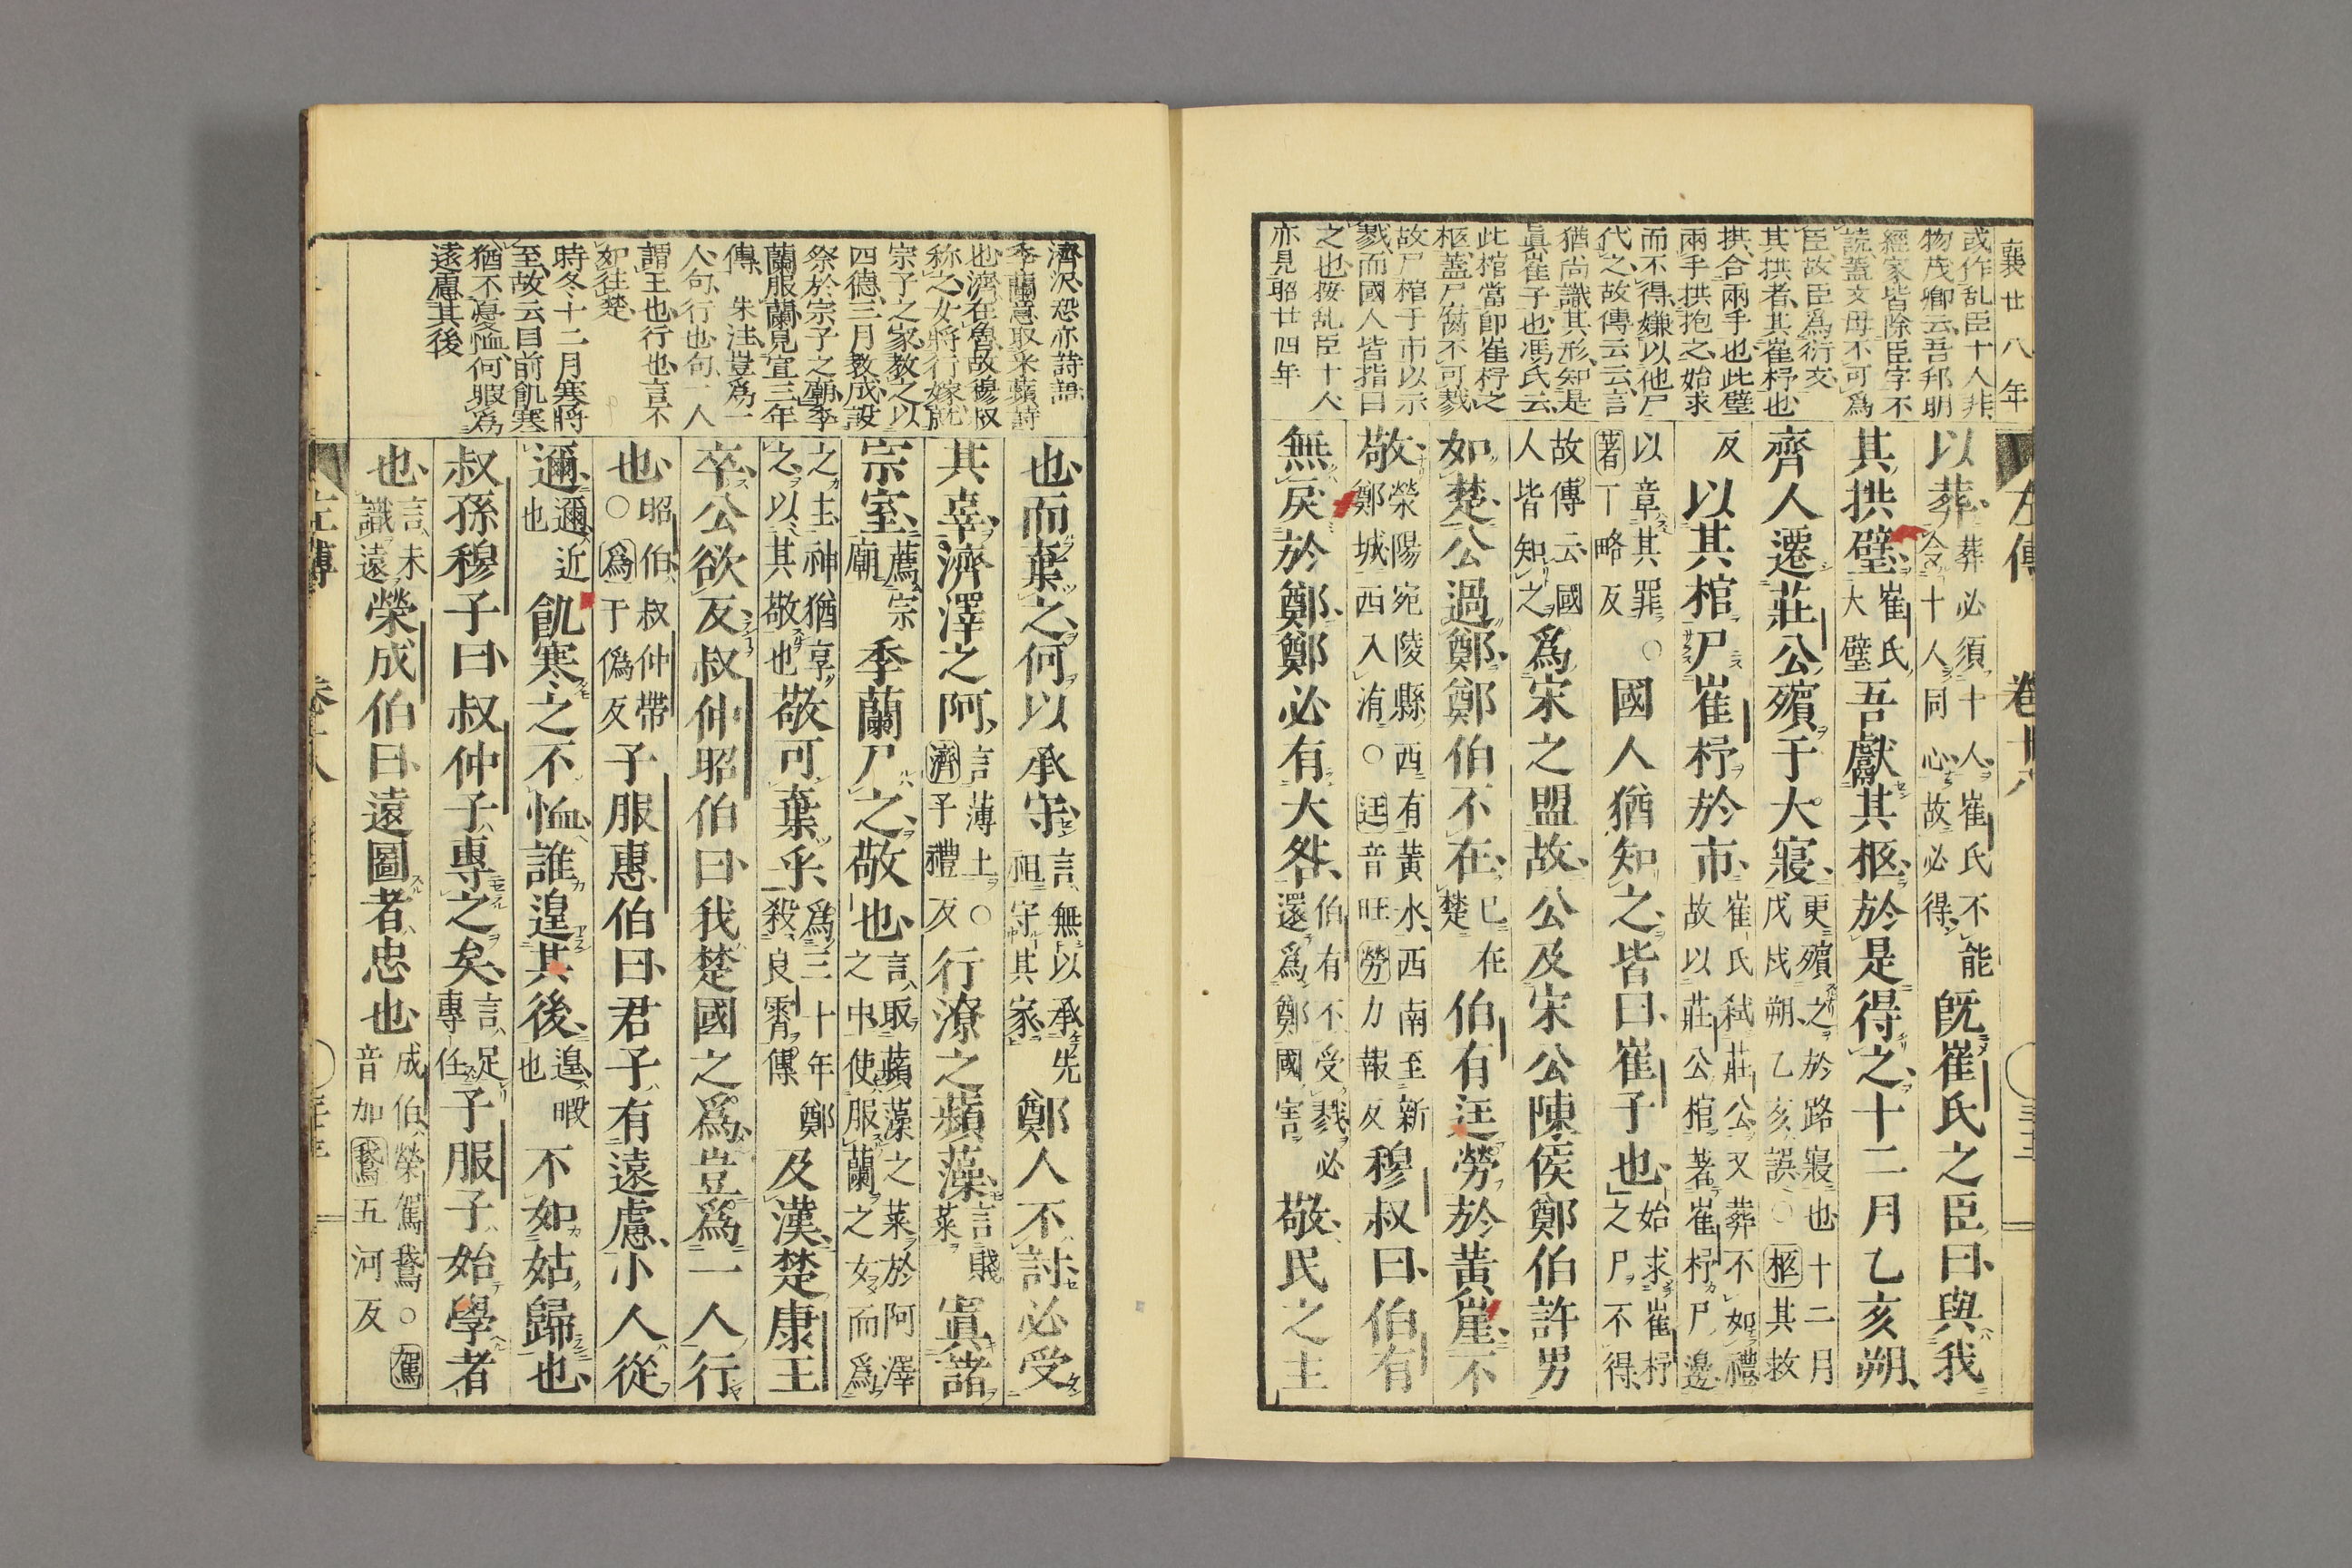 襄廿八年
或作乱臣十人非
物茂卿云吾邦明
經家皆除臣字不
読蓋文母不可爲
臣故臣爲衍文
其拱者其崔杼也
拱合兩手也此璧
兩手拱抱之始求
而不得嫌以他尸
代之故傳云云言
猶尚識其形知是
眞崔子也馮氏云
此棺當即崔杼之
柩蓋尸腐不可戮
故尸棺于市以示
戮而國人皆指曰
之也按乱臣十人
亦見昭廿四年
左傳 卷十八
以葬葬必須十人崔氏不能令十人同心故必得既崔氏之臣曰與我
其拱璧崔氏大璧吾獻其柩於是得之十二月乙亥朔
齊人遷莊公殯于大寢更殯之於路寢也十二月戊戌朔乙亥誤○柩其救
反以其棺尸崔杼於市崔氏弑莊公又葬不如禮故以莊公棺著崔杼尸邊
以章其罪○著丁略反國人猶知之皆曰崔子也始求崔杼之尸不得
故傳云國人皆知之爲宋之盟故公及宋公陳侯鄭伯許男
如楚公過鄭鄭伯不在已在楚伯有廷勞於黃崖不
敬滎陽宛陵縣西有黃水西南至新鄭城西入洧○廷音旺勞力報反穆叔曰伯有
無戾於鄭鄭必有大咎伯有不受戮必還爲鄭國害敬民之主
濟沢恐亦詩語
季蘭意取釆蘋詩
也濟在魯故穆叔
称之女將行嫁就
宗子之家教之以
四德三月教成設
祭於宗子之廟季
蘭服蘭見宣三年
傳 朱注豈爲一
人句行也句一人
謂王也行也言不
如往楚
時冬十二月寒將
至故云目前飢寒
猶不憂恤何暇爲
遠慮其後
也而棄之何以承守言無以承先祖守其家鄭人不討必受
其辜濟澤之阿言薄土○濟子禮反行潦之蘋藻言賤菜寘諸
宗室薦宗廟季蘭尸之敬也言取蘋藻之菜於阿澤之中使服蘭之女而爲
之主神猶享之以其敬也敬可棄乎爲三十年鄭殺良霄傳及漢楚康王
卒公欲反叔仲昭伯曰我楚國之爲豈爲一人行
也昭伯叔仲帶○爲于僞反子服惠伯曰君子有遠慮小人從
邇邇近也飢寒之不恤誰遑其後遑暇也不如姑歸也
叔孫穆子曰叔仲子專之矣言足專任子服子始學者
也言未識遠榮成伯曰遠圖者忠也成伯榮駕鵞○駕音加鵞五河反
左傳